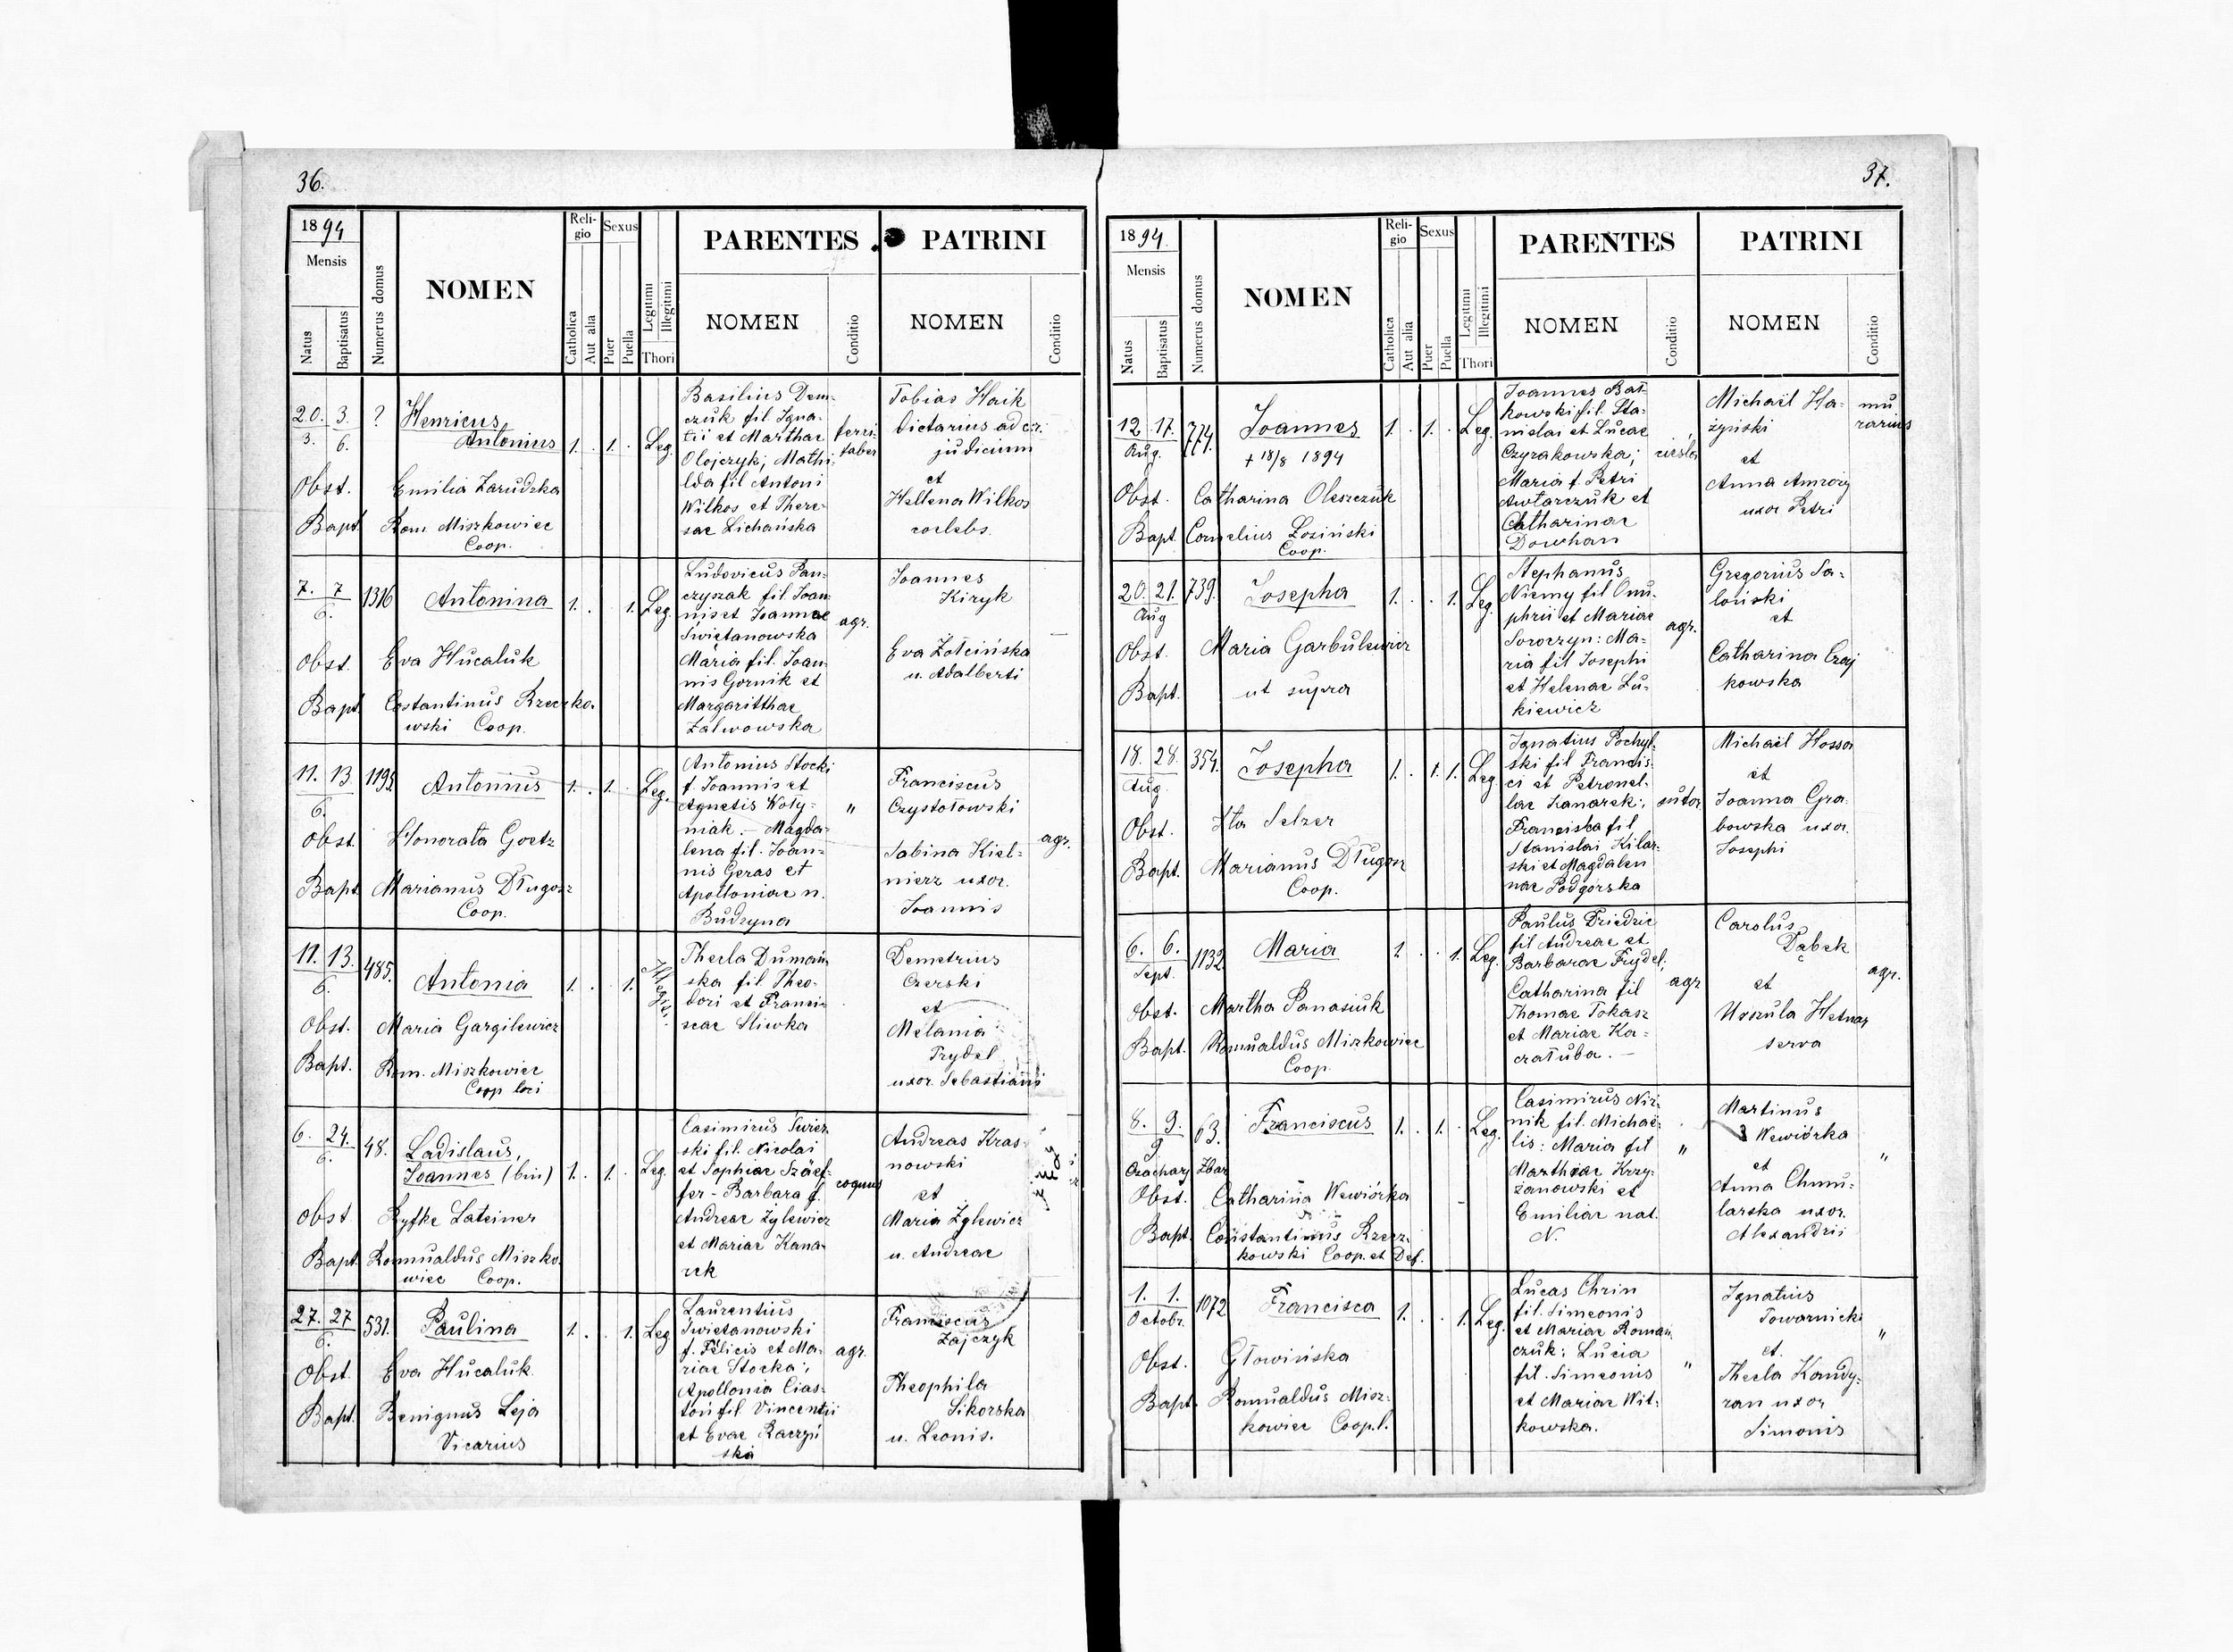 36.
1894
Mensis
Natus
Baptisatus
Numerus domus
NOMEN
Reli-
gio
Catholica
Aut alia
Sexus
Puer
Puella
Legitimi
Illegitimi
Thori
PARENTES
NOMEN
Conditio
PATRINI
NOMEN
Conditio
20. 3. ? Henricus
3. 6. Antonius 1. . 1. . Leg.
Obst. Emilia Zarudzka
Bapt. Rom. Miszkowiec
Coop.
Basilius Dem-
czuk fil Igna-
tii et Marthae
Olejczyk; Mathi-
lda fil Antoni
Wilkos et There-
sae Lichańska
ferri-
faber
Tobias Haik
dietarius ad cr.
judicium
et
Hellena Wilkos
coelebs.
7. 7 1316 Antonina 1. . . 1. Leg.
6.
Obst. Eva Hucaluk
Bapt. Costantinus Rzeczko-
wski Coop.
Ludovicus Pan-
czyszak fil Ioan-
nis et Ioannae
Świetanowska
Maria fil. Ioan-
nis Gornik et
Margaritthae
Zalwowska
agr.
Ioannes
Kiryk
Eva Żołcińska
u. Adalberti
11. 13 1192 Antonius 1. . 1. . Leg.
6.
Obst. Honorata Goetz
Bapt. Marianus Długosz
Coop.
Antonius Stocki
f. Ioannis et
Agnetis Woły-
niak. - Magda-
lena fil. Ioan-
nis Geras et
Apolloniae n.
Budzyna
"
Franciscus
Czystołowski
Sabina Kiel-
nierz uxor.
Ioannis
agr.
11. 13. 485. Antonia 1. . . 1. Illegit.
6.
Obst. Maria Gargilewicz
Bapt. Rom. Miszkowiec
Coop loci
Thecla Dumań-
ska fil Theo-
dori et Francis-
scae Sliwka
Demetrius
Czerski
et
Melania
Frydel
uxor. Sebastiani
6. 24. 48. Ladislaus,
6. Ioannes (bin) 1. . 1. . Leg.
Obst Ryfke Lateiner
Bapt. Romualdus Miszko-
wiec Coop.
Casimirus Swier-
ski fil. Nicolai
et Sophiae Szäef-
fer - Barbara f.
Andreae Zylewicz
et Mariae Kana-
rek
coquus
Andreas Kras-
nowski
et
Maria Zylewicz
u. Andreae
27. 27 531. Paulina 1. . . 1. Leg
6.
Obst. Eva Hucaluk.
Bapt. Benignus Leja
Vicarius
Laurentius
Świetanowski
f. Felicis et Ma-
riae Stocka;
Apollonia Cias-
toń fil Vincentii
et Evae Raczyń
ska
agr.
Franciscus
Zajczyk
Theophila
Sikorska
u. Leonis.
37.
1894.
Mensis
Natus
Baptisatus
Numerus domus
NOMEN
Reli-
gio
Catholica
Aut alia
Sexus
Puer
Puella
Legitimi
Illegitimi
Thori
PARENTES
NOMEN
Conditio
PATRINI
NOMEN
Conditio
12 17. 774. Ioannes 1. . 1. . Leg.
Aug. + 18/8 1894
Obst. Catharina Oleszczuk
Bapt. Cornelius Łosiński
Coop.
Ioannes Bat-
kowski fil. Sta-
nislai et Lucae
Czyrakowska;
Maria f. Petri
Awtarczuk et
Catharinae
Dowhan
cieśla
Michaël Ha-
żyński
et
Anna
uxor Petri
mu
rarius
20. 21. 739. Iosepha 1. . . 1. Leg.
Aug
Obst. Maria Garbulewicz
Bapt. ut supra
Stephanus
Niemy fil Onu-
phrii et Mariae
Soroczyn: Ma-
ria fil Iosephi
et Helenae Lu-
kiewicz
agr.
Gregorius Sa-
loński
et
Catharina Czaj
kowska
18. 28. 354. Iosepha 1. . 1. 1. Leg.
Aug.
Obst. Ita Selzer
Bapt. Marianus Długosz
Coop.
Ignatius Pochyl-
ski fil Francis-
ci et Petronel-
lae Kanarek;
Franciska fil
Stanislai Kilar-
ski et Magdalen
nae Podgórska
sutor
Michaël Hossa
et
Ioanna Gra-
bowska uxor.
Iosephi
6. 6. 1132. Maria 1. . . 1. Leg.
Sept.
Obst. Martha Panasiuk
Bapt. Romualdus Miszkowiec
Coop.
Paulus Driedzic
fil Andreae et
Barbarae Frydel;
Catharina fil
Thomae Tokasz
et Mariae Ka-
czałuba. -
agr
Carolus
Dąbek
et
Urszula Hetnar
serva
agr.
8. 9. 63. Franciscus 1. . 1. . Leg.
9
Czachary Zbar
Obst. Catharina Wewiórka
Bapt. Constantinus Rzecz-
kowski Coop. et Def.
Casimirus Nir-
nik fil. Michaë-
lis: Maria fil
Marthae Krzy-
żanowski et
Emiliae nat.
N.
"
Martinus
Wewiórka
et
Anna Chmu-
larska uxor.
Alexandrii
"
1. 1. 1072 Francisca 1. . . 1. Leg.
Octobr.
Obst. Głowińska
Bapt. Romualdus Misz-
kowiec Coop. l.
Lucas Chrin
fil. Simeonis
et Mariae Roman-
czuk: Lucia
fil. Simeonis
et Mariae Wit-
kowska.
"
Ignatius
Towarnicki
et.
Thecla Kandy-
ran uxor
Simonis
"